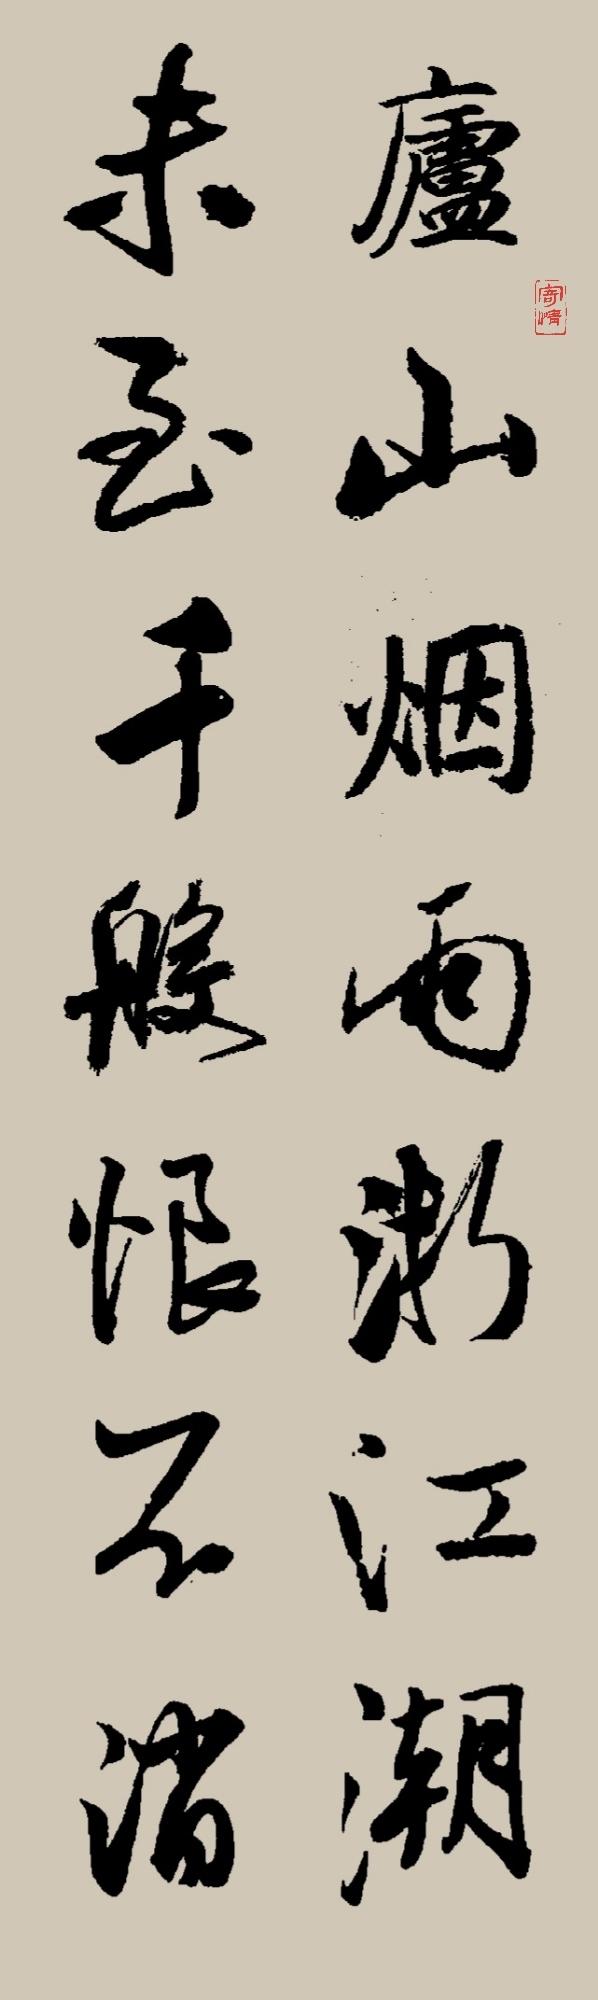 廬山烟雨浙江潮
未至千般恨不消
寄情